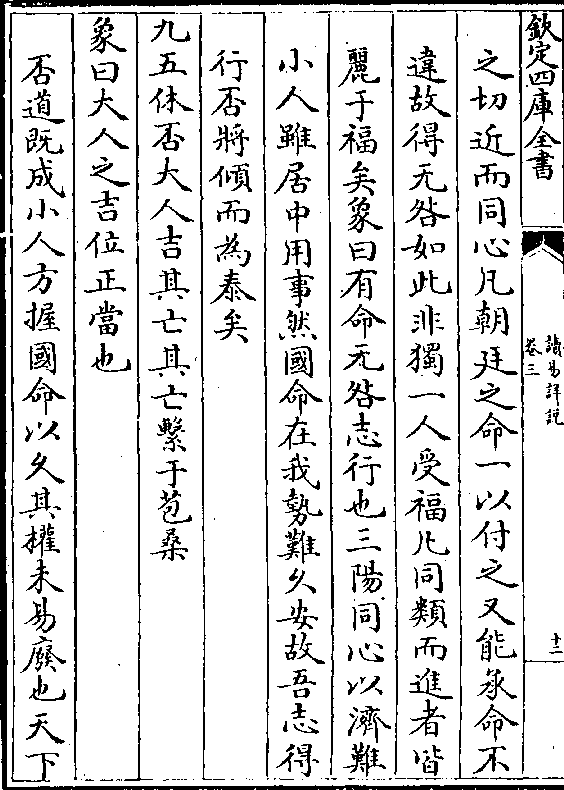 欽定四庫全書
讀易詳說
卷三
十二
之切近而同心凡朝廷之命一以付之又能承命不
違故得无咎如此非獨一人受福凡同類而進者皆
麗于福矣象曰有命无咎志行也三陽同心以濟難
小人雖居中用事然國命在我勢難久安故吾志得
行否將傾而為泰矣
九五休否大人吉其亡其亡繫于苞桑
象曰大人之吉位正當也
否道既成小人方握國命以久其權未易廢也天下